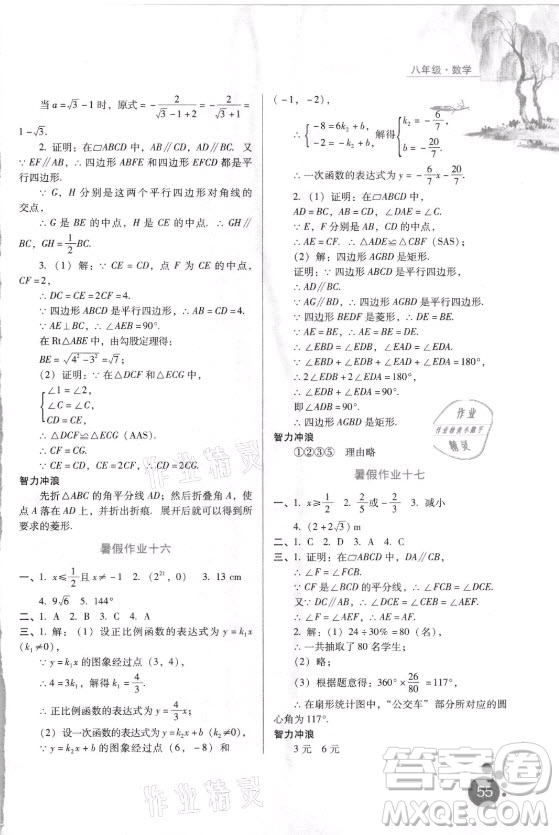 八年级·数学
当 a=√3-1 时，原式=-2/(√3-1+2)=-2/(√3+1)=
1-√3.
2. 证明：在▱ABCD 中，AD∥BC，AB∥CD. 又
∵ EF∥AB，∴ 四边形 ABFE 和四边形 EFCD 都是平
行四边形.
∵ G，H 分别是这两个平行四边形对角线的
交点，
∴ G 是 BE 的中点，H 是 CE 的中点. ∴ GH∥
BC，GH=1/2BC.
3. （1）解：∵ CE=CD，点 F 为 CE 的中点，
CF=2，
∴ DC=CE=2CF=4.
∵ 四边形 ABCD 是平行四边形，∴ AB=CD=4.
∵ AE⊥BC，∴ ∠AEB=90°.
在 Rt△ABE 中，由勾股定理得：
BE=√(4²-3²)=√7；
（2）证明：在△DCF 和△ECG 中，
{∠1=∠2，
∠C=∠C，
CD=CE，
∴ △DCF≌△ECG（AAS）.
∴ CF=CG.
∵ CD=CE=2CF，∴ CD=2CG，即 G 为 CD 中点.
智力冲浪
先折△ABC 的角平分线 AD；然后折叠角 A，使 A
点与 D 点重合，并折出折痕. 展开后就可以得到所
要求的菱形.
暑假作业十六
一、1. x≤1/2且x≠-1 2. （2²¹，0） 3. 13 cm
4. 9√6 5. 144°
二、1. A 2. B 3. C 4. A
三、1. 解：（1）设正比例函数的表达式为 y=k₁x
（k₁≠0），
∵ y=k₁x 的图象经过点（3，4），
∴ 4=3k₁，解得 k₁=4/3.
∴ 正比例函数的表达式为 y=4/3x，
（2）设一次函数的表达式为 y=k₂x+b（k₂≠0），
∵ y=k₂x+b 的图象经过点（6，-8）和
（-1，-2），
∴ {-8=6k₂+b，
-2=-k₂+b， 解得{k₂=-6/7，
b=-20/7.
∴ 一次函数的表达式为 y=-6/7x-20/7.
2. （1）证明：在▱ABCD 中，
AD=BC，AB=CD，∠DAE=∠C.
∵ E，F 分别是 AB，CD 的中点，
∴ AE=CF. ∴ △ADE≌△CBF（SAS）；
（2）解：四边形 AGBD 是矩形.
证明：∵ 四边形 ABCD 是平行四边形，
∴ AD∥BC.
∵ AG∥BD，∴ 四边形 AGBD 是平行四边形.
∵ 四边形 BEDF 是菱形，∴ DE=BE.
∵ AE=BE，∴ AE=BE=DE.
∴ ∠EBD=∠EDB，∠EAD=∠EDA.
∵ ∠EBD+∠EDB+∠EAD+∠EDA=180°，
∴ 2∠EDB+2∠EDA=180°.
∴ ∠EDB+∠EDA=90°，
即∠ADB=90°. ∴ 四边形 AGBD 是矩形.
智力冲浪
①②③⑤ 理由略
暑假作业十七
一、1. x≥1/2 2. 2/5或-2/3 3. 减小
4. （2+2√3）m
二、1. C 2. D 3. A 4. D
三、1. 证明：在▱ABCD 中，DA∥CB，
∴ ∠F=∠FCB.
∵ CF 是∠BCE 的平分线，∴ ∠FCB=∠DCE.
又∵ DC∥AB，∴ ∠DCE=∠E.
∴ ∠E=∠F. ∴ AE=AF.
2. 解：（1）24÷30%=80（名），
∴ 一共抽取了 80 名学生；
（2）略；
（3）根据题意得：360°×26/80=117°.
∴ 在扇形统计图中，“公交车”部分所对应的圆
心角为 117°.
智力冲浪
3 元 6 元
55
作业
作业精灵小助手
精灵
作业精灵
作业精灵
答案圈
MXQE.COM